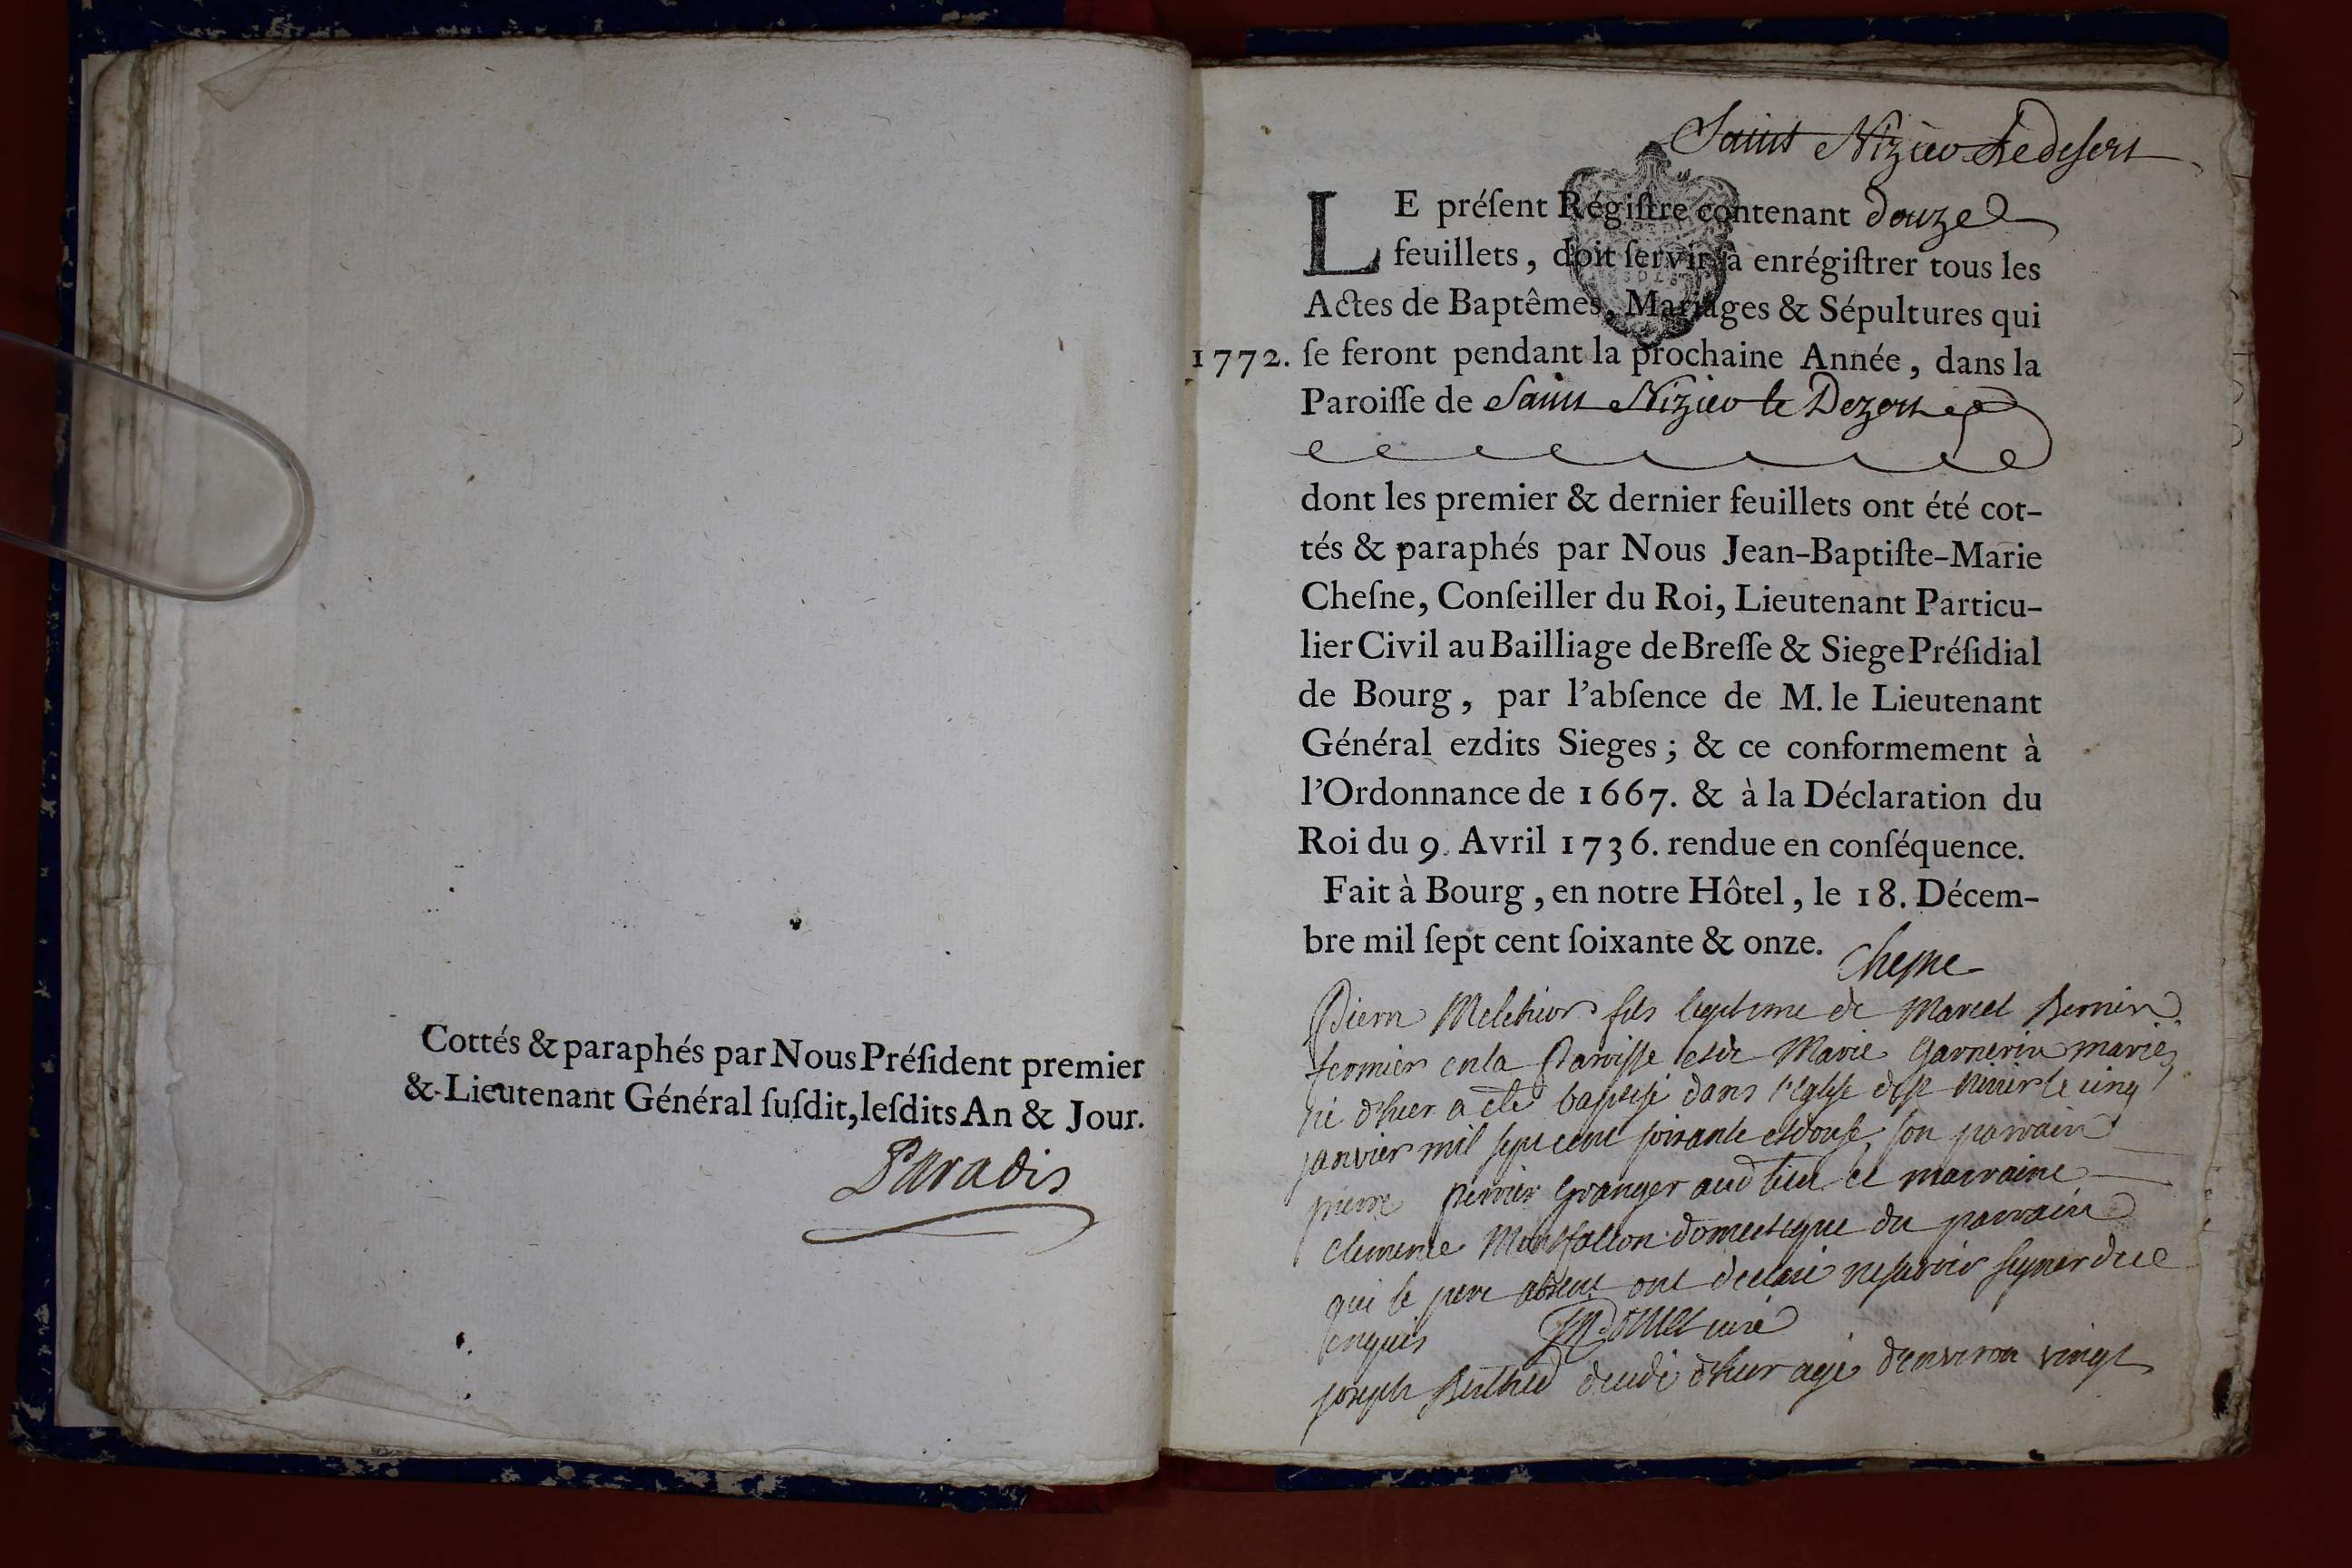 Cottés & paraphés par Nous Préſident premier
& Lieutenant Général ſuſdit, leſdits An & Jour.
Paradis
Saint Nizier le desert
LE préſent Régiſtre contenant douze
feuillets, doit ſervir à enrégiſtrer tous les
Actes de Baptêmes, Mariages & Sépultures qui
1772. ſe feront pendant la prochaine Année, dans la
Paroiſſe de Saint Nizier le Dezert
dont les premier & dernier feuillets ont été cot-
tés & paraphés par Nous Jean-Baptiſte-Marie
Cheſne, Conſeiller du Roi, Lieutenant Particu-
lier Civil au Bailliage de Breſſe & Siege Préſidial
de Bourg, par l'abſence de M. le Lieutenant
Général ezdits Sieges ; & ce conformement à
l'Ordonnance de 1667. & à la Déclaration du
Roi du 9. Avril 1736. rendue en conſéquence.
Fait à Bourg, en notre Hôtel, le 18. Décem-
bre mil ſept cent ſoixante & onze.
Chesne
Pierre Melchior fils legitime de Marcel
fermier en la Paroisse et de Marie Garnerin mariés,
né d'hier a été baptisé dans l'eglise de st Nizier le cinq
janvier mil sept cent soixante et douse, son parrain
pierre perrier Granger aud lieu et marraine
Clemence Montfalcon domestique du parrain
qui le pere absent ont declaré ne savoir signer de ce
enquis curé
joseph decedé d'hier agé d'environ vingt